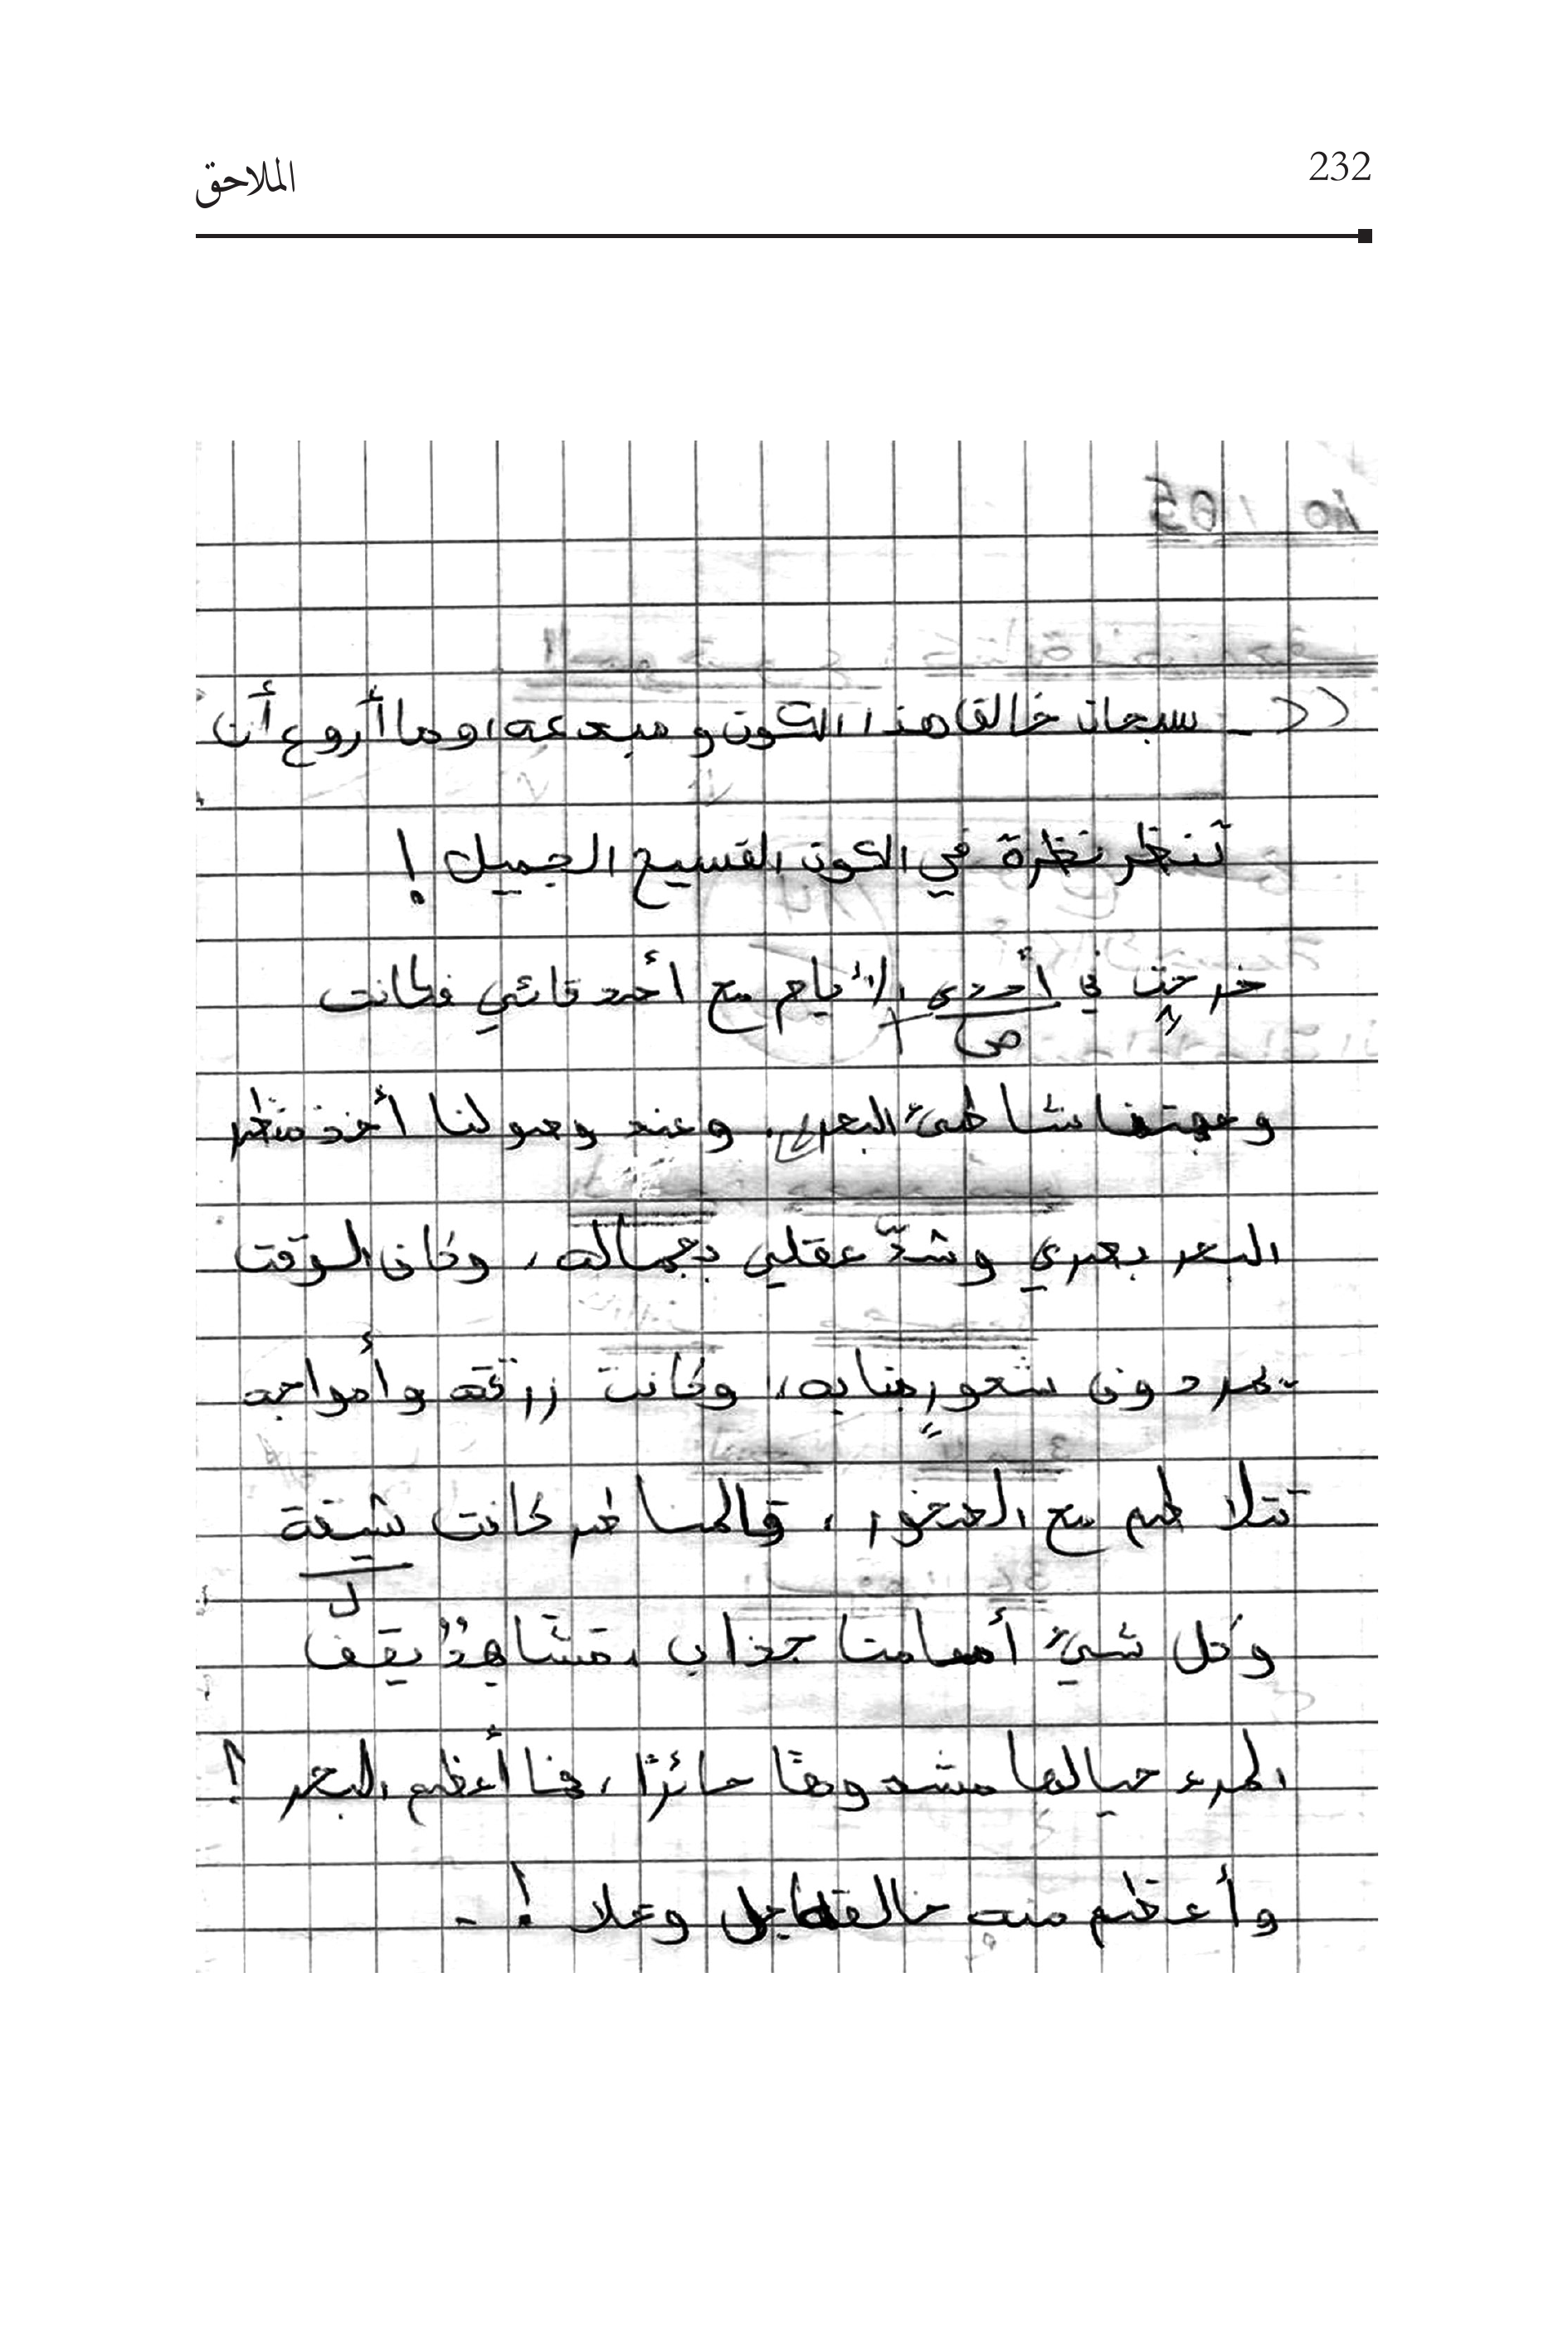 232
الملاحق
(( - سبحان خالق هذا الكون و مبدعه، وما أروع أن
تنظر نظرة في الكون الفسيح الجميل !
خرجت في أحدى الأيام مع أصدقائي فكانت
ص
وجهتنا شاطئ البحر، وعند وصولنا أخذ منظر
البحر بصري وشدّ عقلي بجماله، وكان الوقت
يمر دون شعورٍ منا به، وكانت زرقته وأمواجه
تتلاطم مع الصخور، فالمناظر كانت شيقة
ل
وكل شيئ أمامنا جذاب، مشاهدُ يقف
المرء حيالها مشدوها حائرًا، فما أعظم البحر !
وأعظم منه خالقه جل وعلا ! -